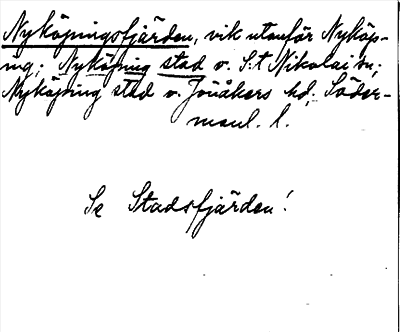 Nyköpingsfjärden, vik utanför Nyköp-
ing; Nyköping stad o. S:t Nikolai sn;
Nyköping stad o. Jönåkers hd; Söder-
manl. l.
Se Stadsfjärden!